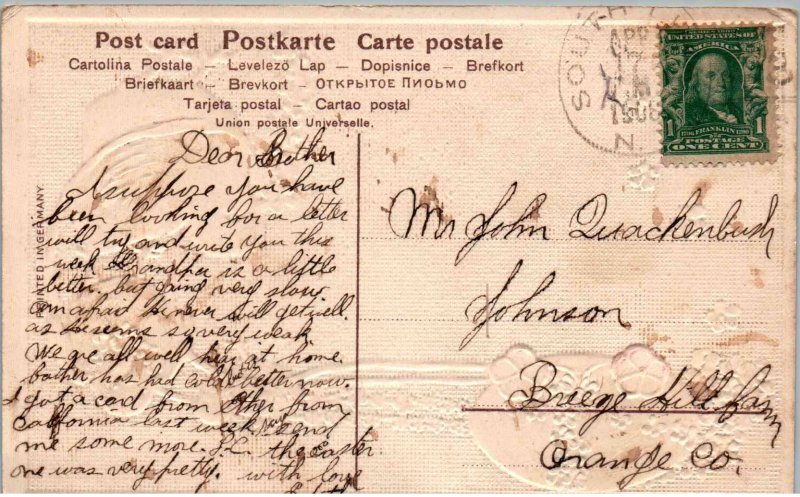 Post card Postkarte Carte postale
Cartolina Postale – Levelezö Lap – Dopisnice – Brefkort
Briefkaart – Brevkort – ОТКРЫТОЕ ПИСЬМО
Tarjeta postal – Cartao postal
Union postale Universelle.
PRINTED IN GERMANY
SOUTH
APR
17
N.
SERIES 1902
UNITED STATES OF
AMERICA
1 FRANKLIN 1
POSTAGE
ONE CENT
Dear Brother
I suppose you have
been looking for a letter
will try and write you this
week Grandpa is a little
better. but going very slow
am afraid He never will get well
as He seems so very weak
We are all well here at home
has had cold better now.
I got a card from from
California last week send
me some more. P.C. the Easter
one was very pretty. with love
Mr John Quackenbush
Johnson
Breege Hill farm
Orange Co.